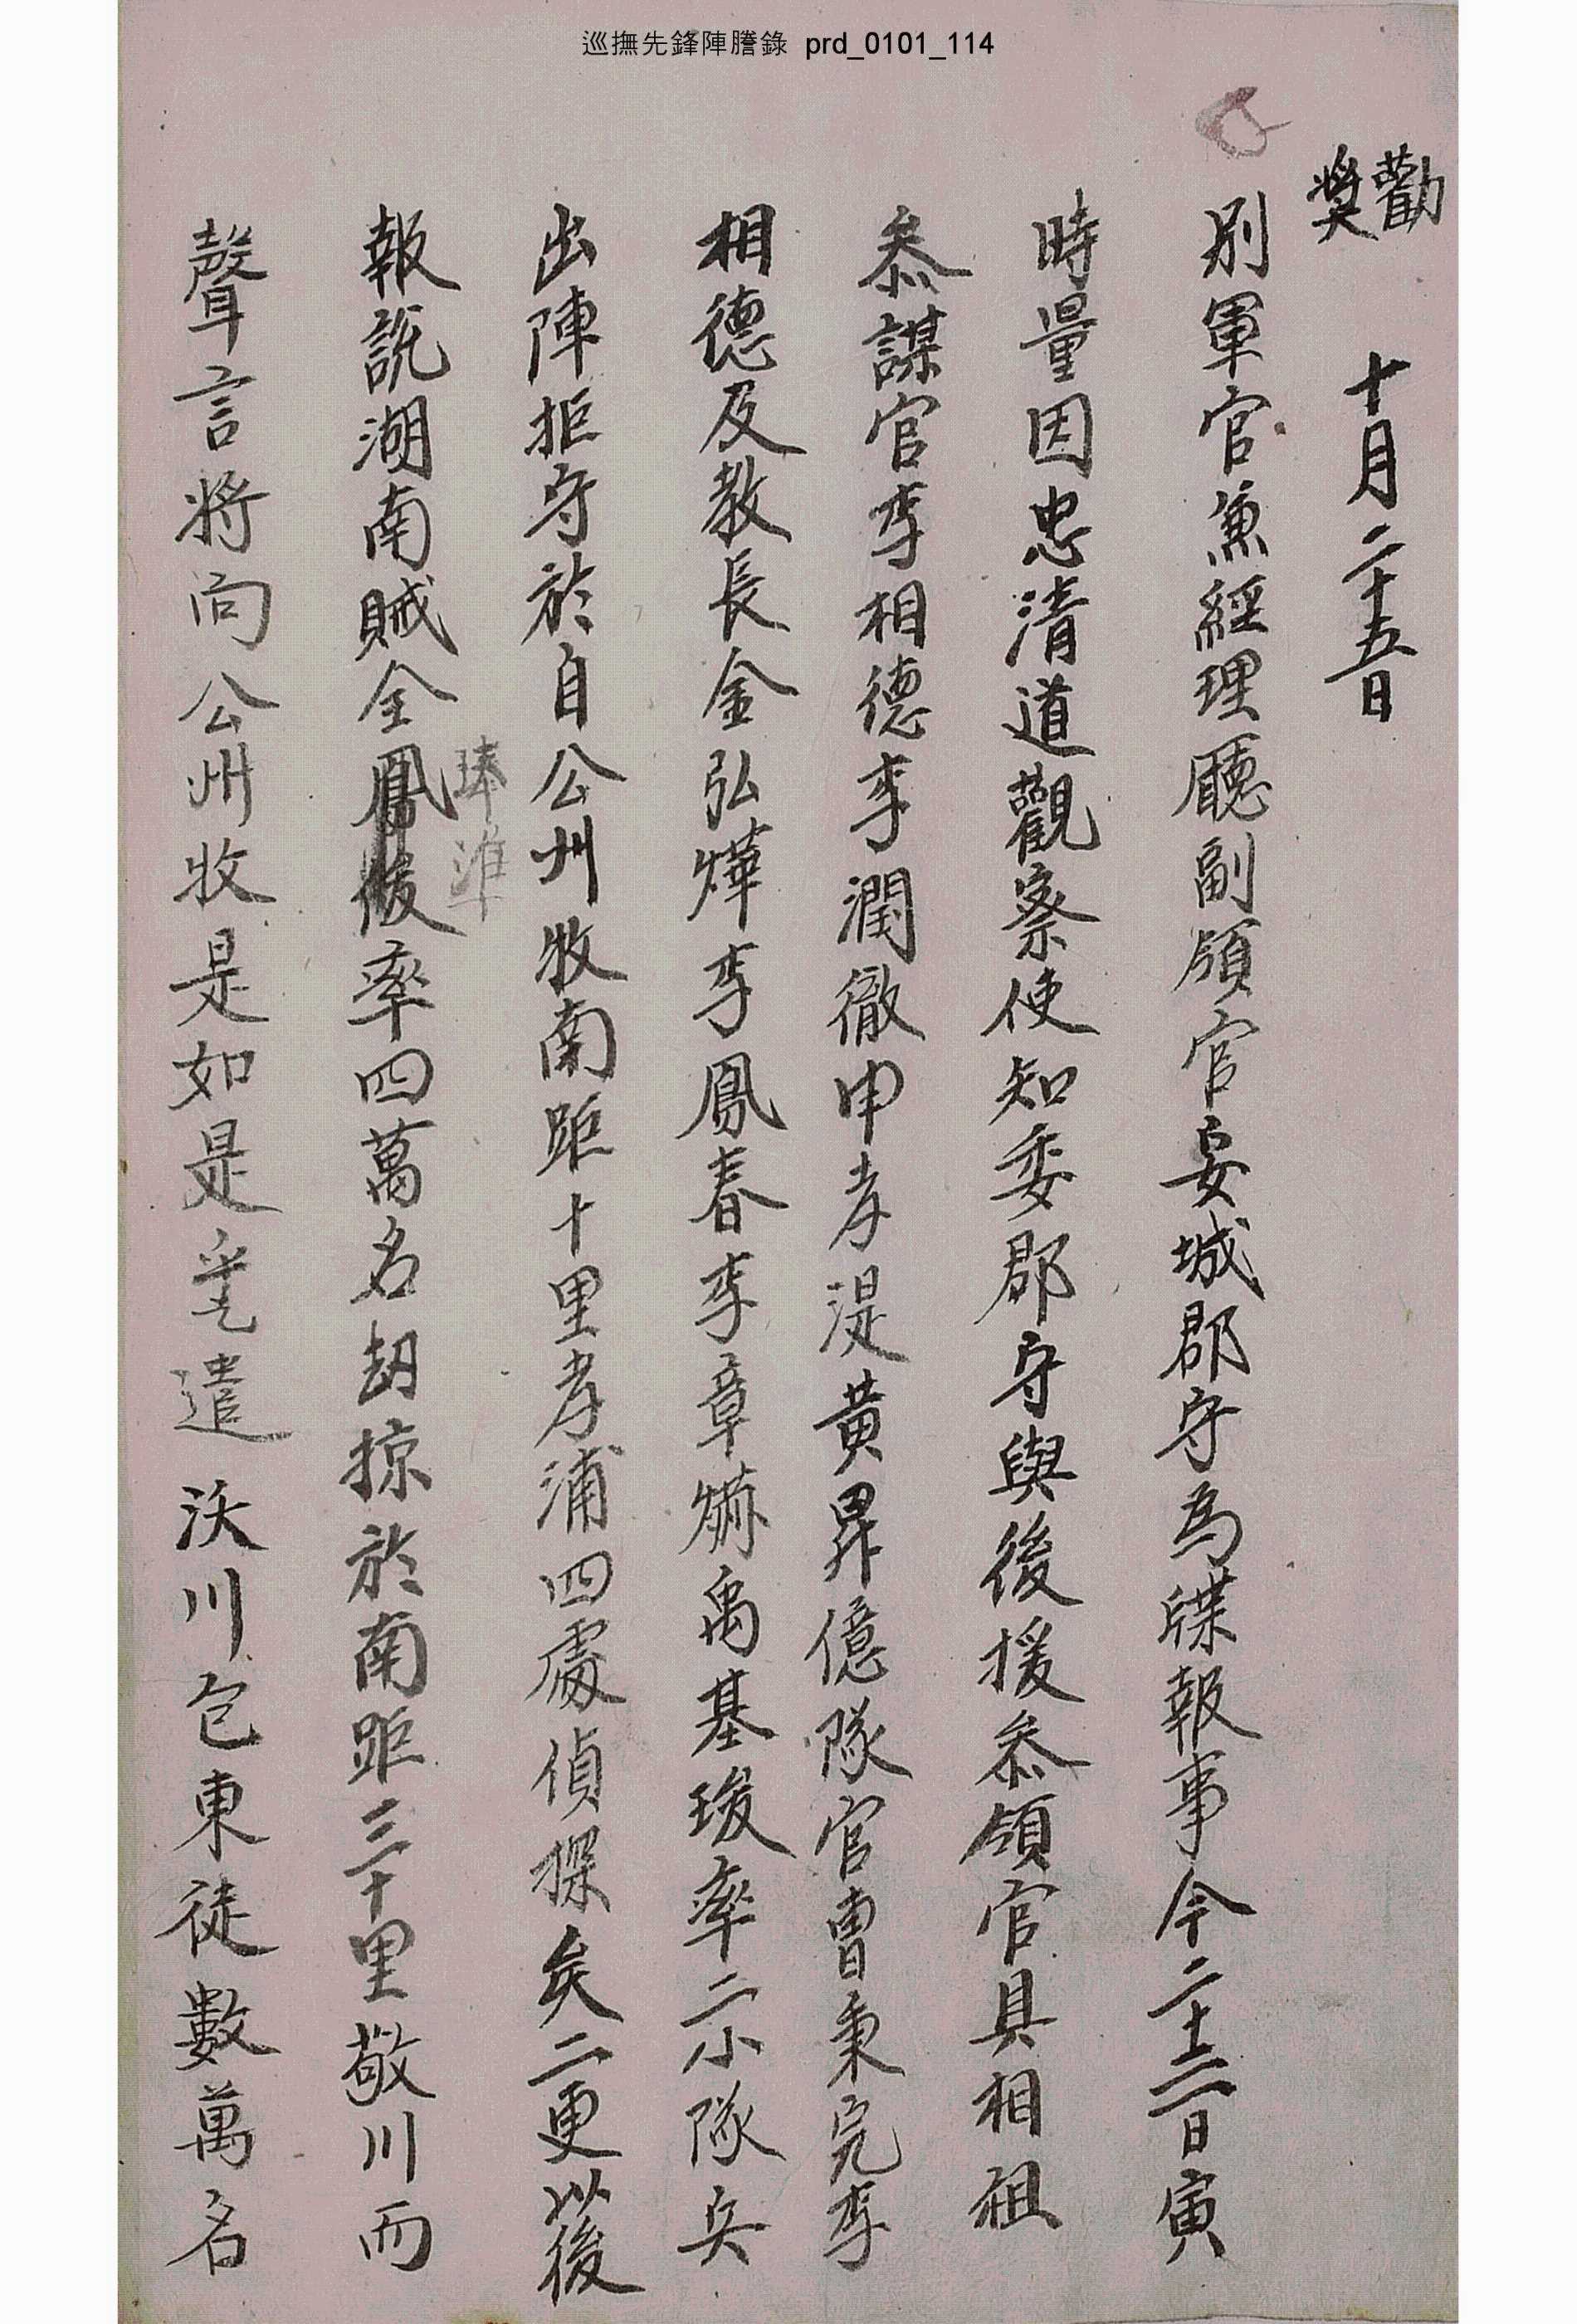 巡撫先鋒陣謄錄 prd_0101_114
勸
奬
十月二十五日
別軍官兼經理廳副領官安城郡守爲牒報事今二十三日寅
時量因忠清道觀察使知委郡守與後援叅領官具相祖
叅謀官李相德李潤徹申孝湜黃昇億隊官曺秉完李
相德及敎長金弘燁李鳳春李章爀禹基琓率二小隊兵
出陣拒守於自公州牧南距十里孝浦四處偵探矣二更以後
報說湖南賊全鳳俊率四萬名刦掠於南距三十里敬川而
琫準
聲言將向公州牧是如是乎乙遣沃川包東徒數萬名